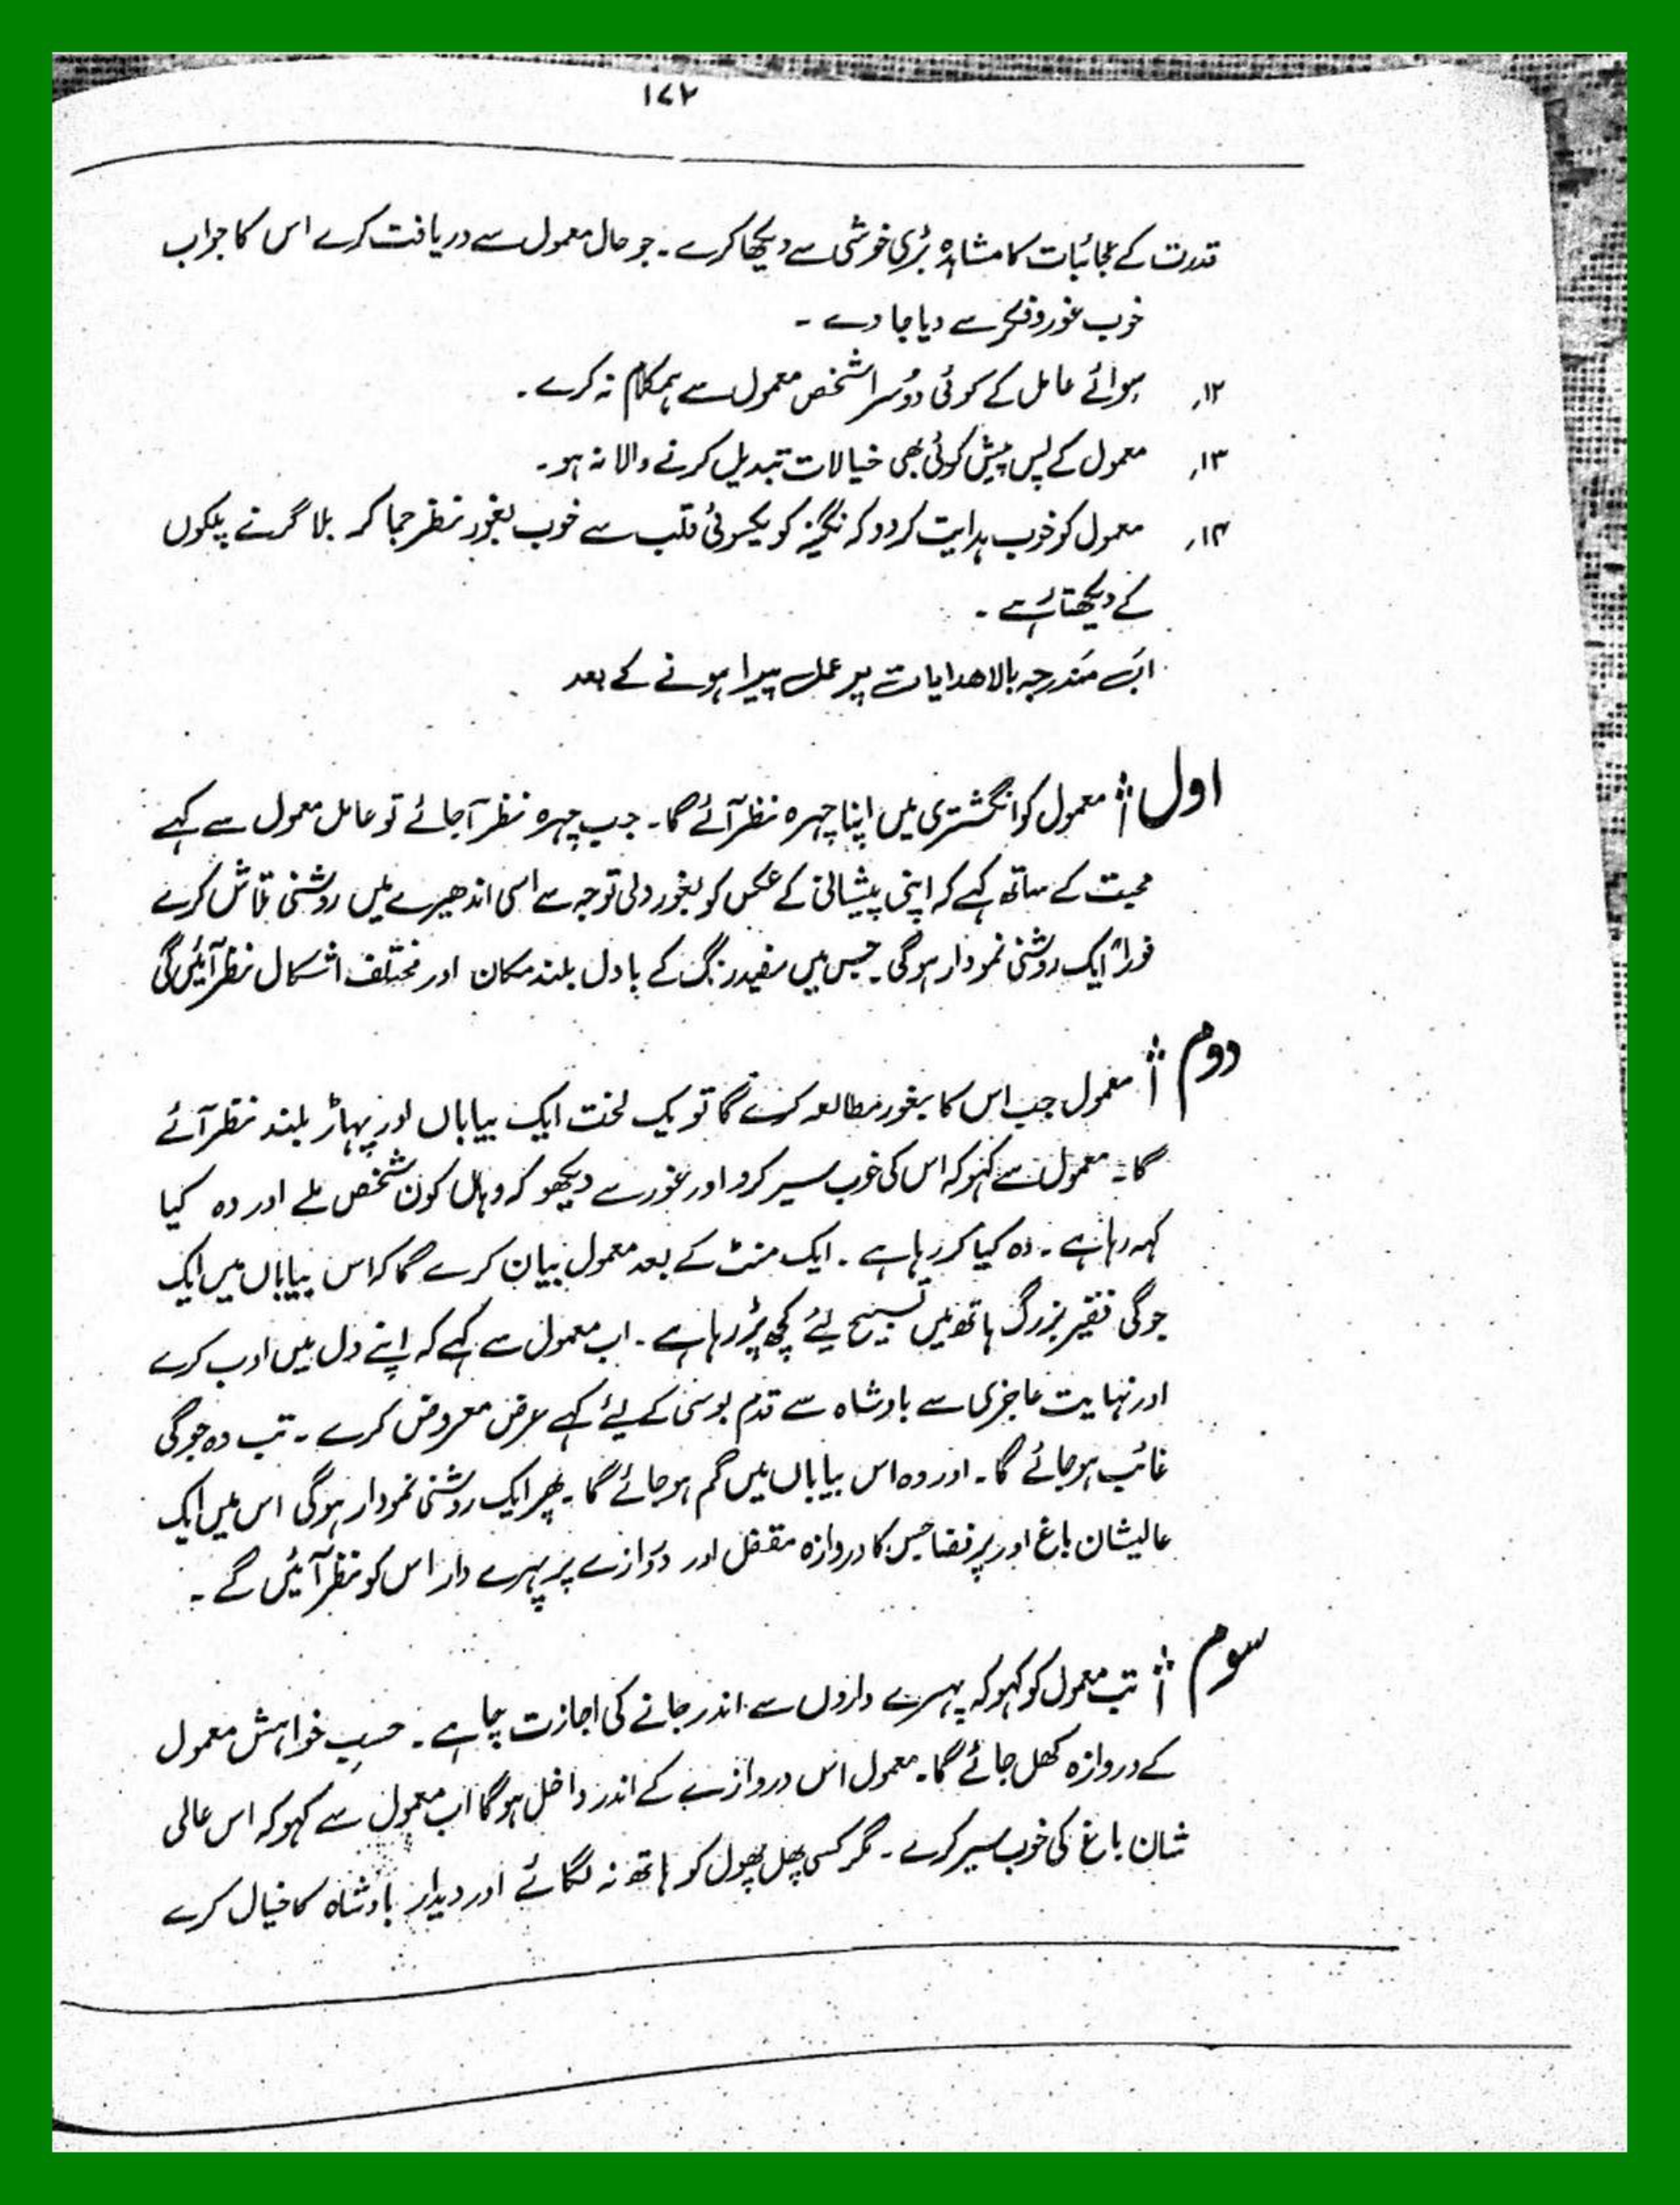 ۱۷۲
قدرت کے عجائبات کا مشاہدہ بڑی خوشی سے دیکھا کرے ۔ جو حال معمول سے دریافت کرے اس کا جواب
خوب غور و فکر سے دیا جاوے ۔
۱۲, سوائے عامل کے کوئی دوسرا شخص معمول سے ہمکلام نہ کرے ۔
۱۳, معمول کے پس پیش کوئی بھی خیالات تبدیل کرنے والا نہ ہو ۔
۱۴, معمول کو خوب ہدایت کر دو کہ نگینہ کو یکسوئی قلب سے خوب بغور نظر جما کر بلا گرنے پلکوں
کے دیکھتا رہے ۔
اب مندرجہ بالا ھدایات پر عمل پیرا ہونے کے بعد
اول معمول کو انگشتری میں اپنا چہرہ نظر آئے گا ۔ جب چہرہ نظر آ جائے تو عامل معمول سے کہے
محبت کے ساتھ کہے کہ اپنی پیشانی کے عکس کو بغور دلی توجہ سے اسی اندھیرے میں روشنی تلاش کرے
فوراً ایک روشنی نمودار ہوگی ۔ جس میں سفید رنگ کے بادل بلند مکان اور مختلف اشکال نظر آئیں گی
دوم معمول جب اس کا بغور مطالعہ کرے گا تو یک لخت ایک بیاباں اور پہاڑ بلند نظر آئے
گا ۔ معمول سے کہو کہ اس کی خوب سیر کرو اور غور سے دیکھو کہ وہاں کون شخص ملے اور وہ کیا
کہہ رہا ہے ۔ وہ کیا کر رہا ہے ۔ ایک منٹ کے بعد معمول بیان کرے گا کہ اس بیاباں میں ایک
جوگی فقیر بزرگ ہاتھ میں تسبیح لیئے کچھ پڑ رہا ہے ۔ اب معمول سے کہے کہ اپنے دل میں ادب کرے
اور نہایت عاجزی سے بادشاہ سے قدم بوسی کے لیئے کہے عرض معروض کرے ۔ تب وہ جوگی
غائب ہو جائے گا ۔ اور وہ اس بیاباں میں گم ہو جائے گا ۔ پھر ایک روشنی نمودار ہوگی اس میں ایک
عالیشان باغ اور پرفضا جس کا دروازہ مقفل اور دروازے پر پہرے دار اس کو نظر آئیں گے ۔
سوم تب معمول کو کہو کہ پہرے داروں سے اندر جانے کی اجازت چاہے ۔ حسب خواہش معمول
کے دروازہ کھل جائے گا ۔ معمول اس دروازے کے اندر داخل ہوگا اب معمول سے کہو کہ اس عالی
شان باغ کی خوب سیر کرے ۔ مگر کسی پھل پھول کو ہاتھ نہ لگائے اور دیدار بادشاہ کا خیال کرے